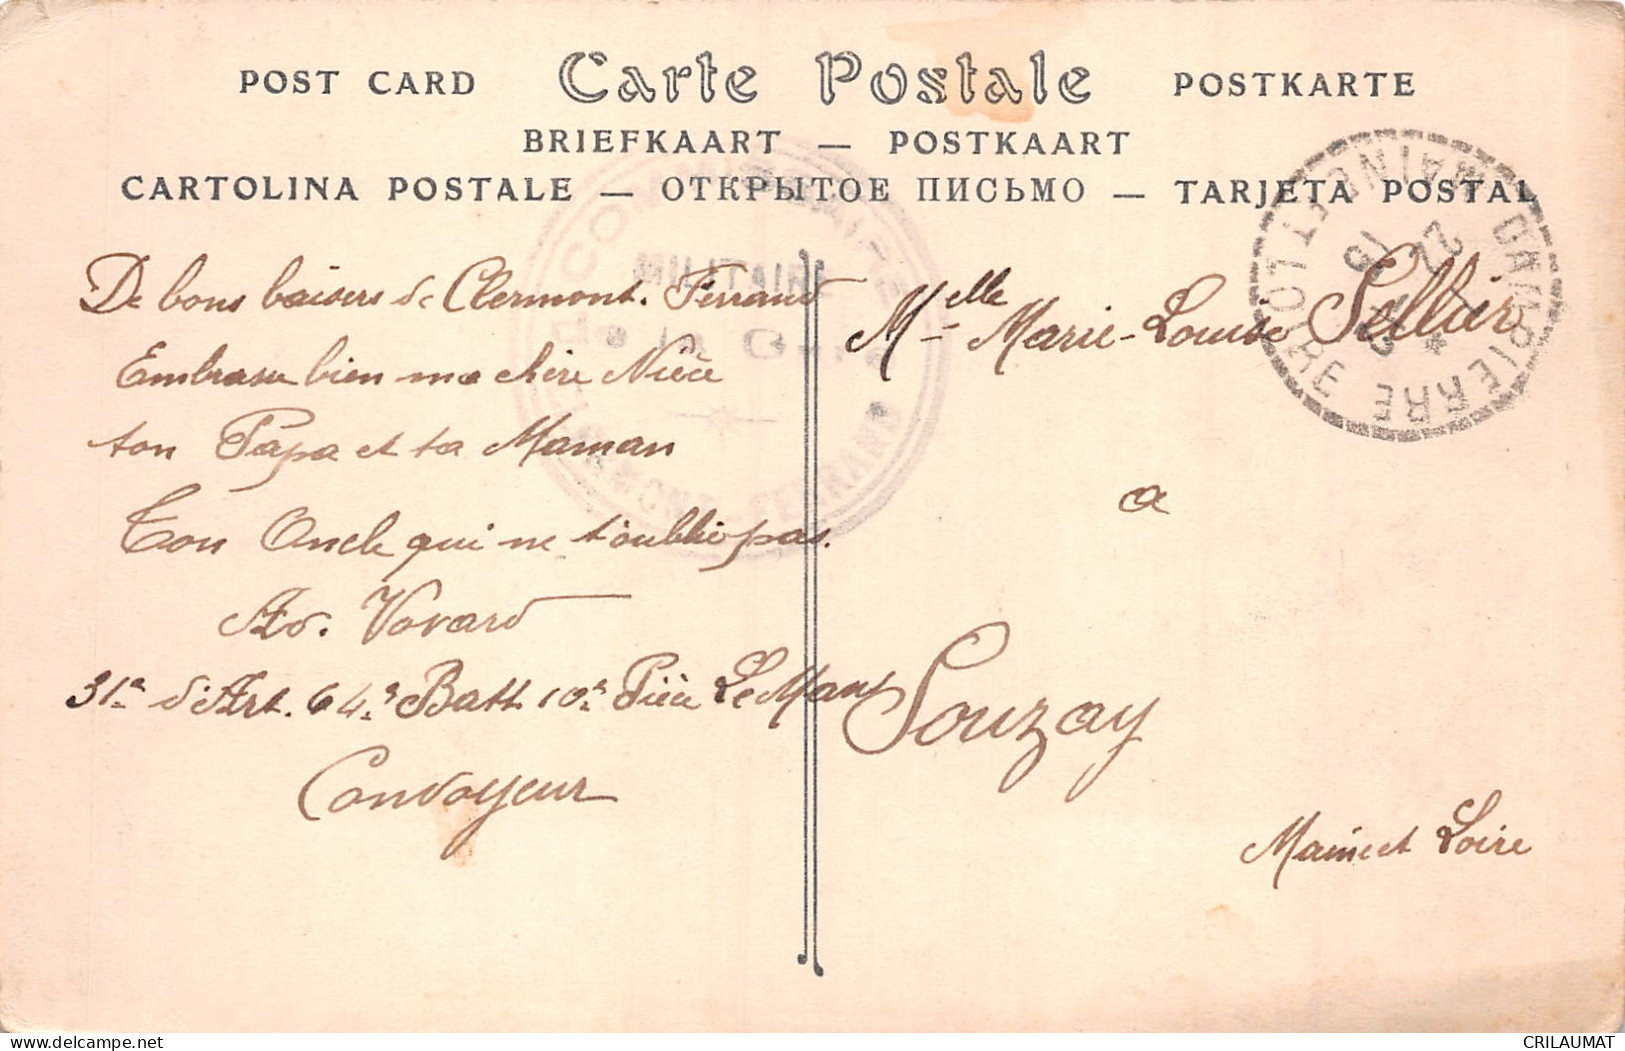 POST CARD Carte Postale POSTKARTE
BRIEFKAART — POSTKAART
CARTOLINA POSTALE — ОТКРЫТОЕ ПИСЬМО — TARJETA POSTAL
COMMISSAIRE
MILITAIRE
de la Gare
CLERMONT-FERRAND
DAMPIERRE
MAINE ET LOIRE
De bons baisers de Clermont. Ferrand
Embrasse bien ma chère Nièce
ton Papa et ta Maman
Ton Oncle qui ne t'oublie pas.
Ad. Vovard
31e d'Art. 64e Batt 10e Pièce Le Mans
Convoyeur
Melle Marie-Louise Sellier
a
Souzay
Maine et Loire
delcampe.net
CRILAUMAT